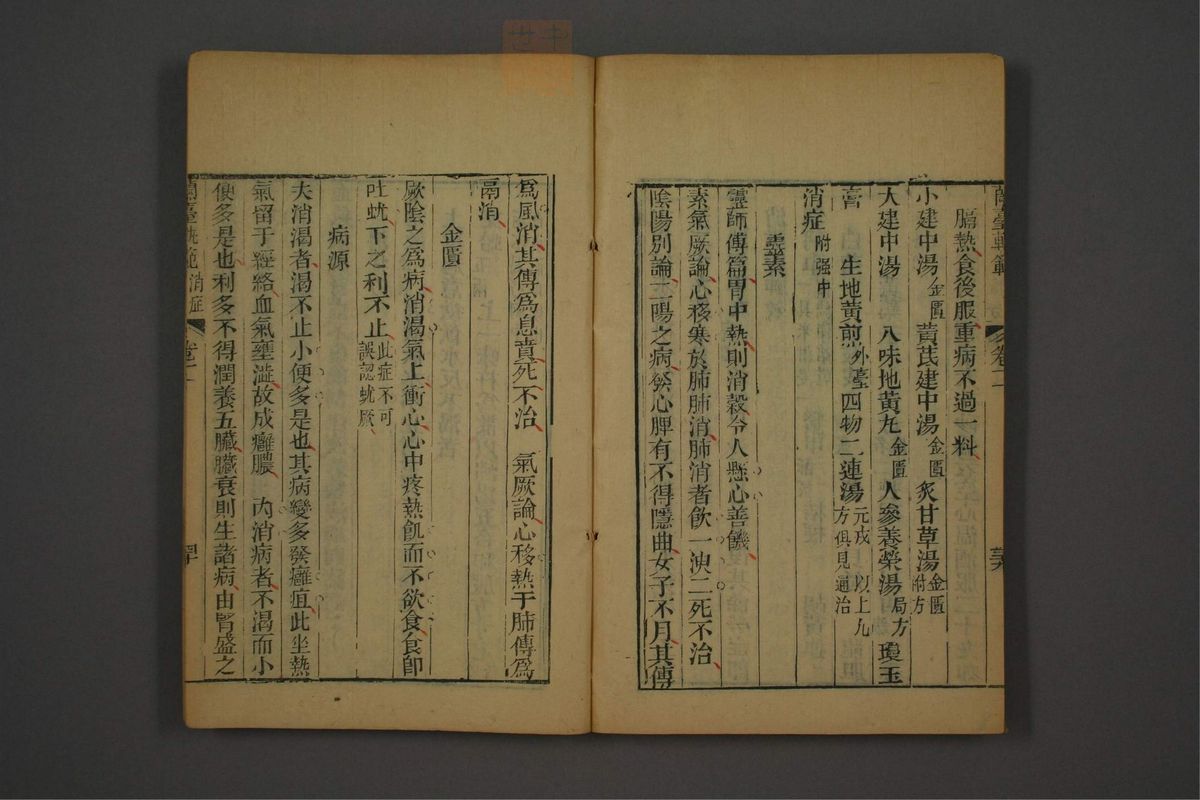 蘭臺軌範 卷二
膈熱食後服重病不過一料
小建中湯金匱 黃芪建中湯金匱 炙甘草湯金匱附方
大建中湯 八味地黃丸金匱 人參養榮湯局方 瓊玉
膏 生地黃煎外臺 四物二連湯元戎 以上九方俱見通治
消症附强中
靈素
靈師傳篇胃中熱則消穀令人懸心善饑
素氣厥論心移寒於肺肺消肺消者飲一溲二死不治
陰陽別論二陽之病發心脾有不得隱曲女子不月其傳
爲風消其傳爲息賁死不治 氣厥論心移熱于肺傳爲
鬲消
金匱
厥陰之爲病消渴氣上衝心心中疼熱飢而不欲食食卽
吐蚘下之利不止此症不可誤認蚘厥
病源
夫消渴者渴不止小便多是也其病變多發癰疽此坐熱
氣留于經絡血氣壅澁故成癰膿 內消病者不渴而小
便多是也利多不得潤養五臟臟衰則生諸病由腎盛之
蘭臺軌範 消症 卷二